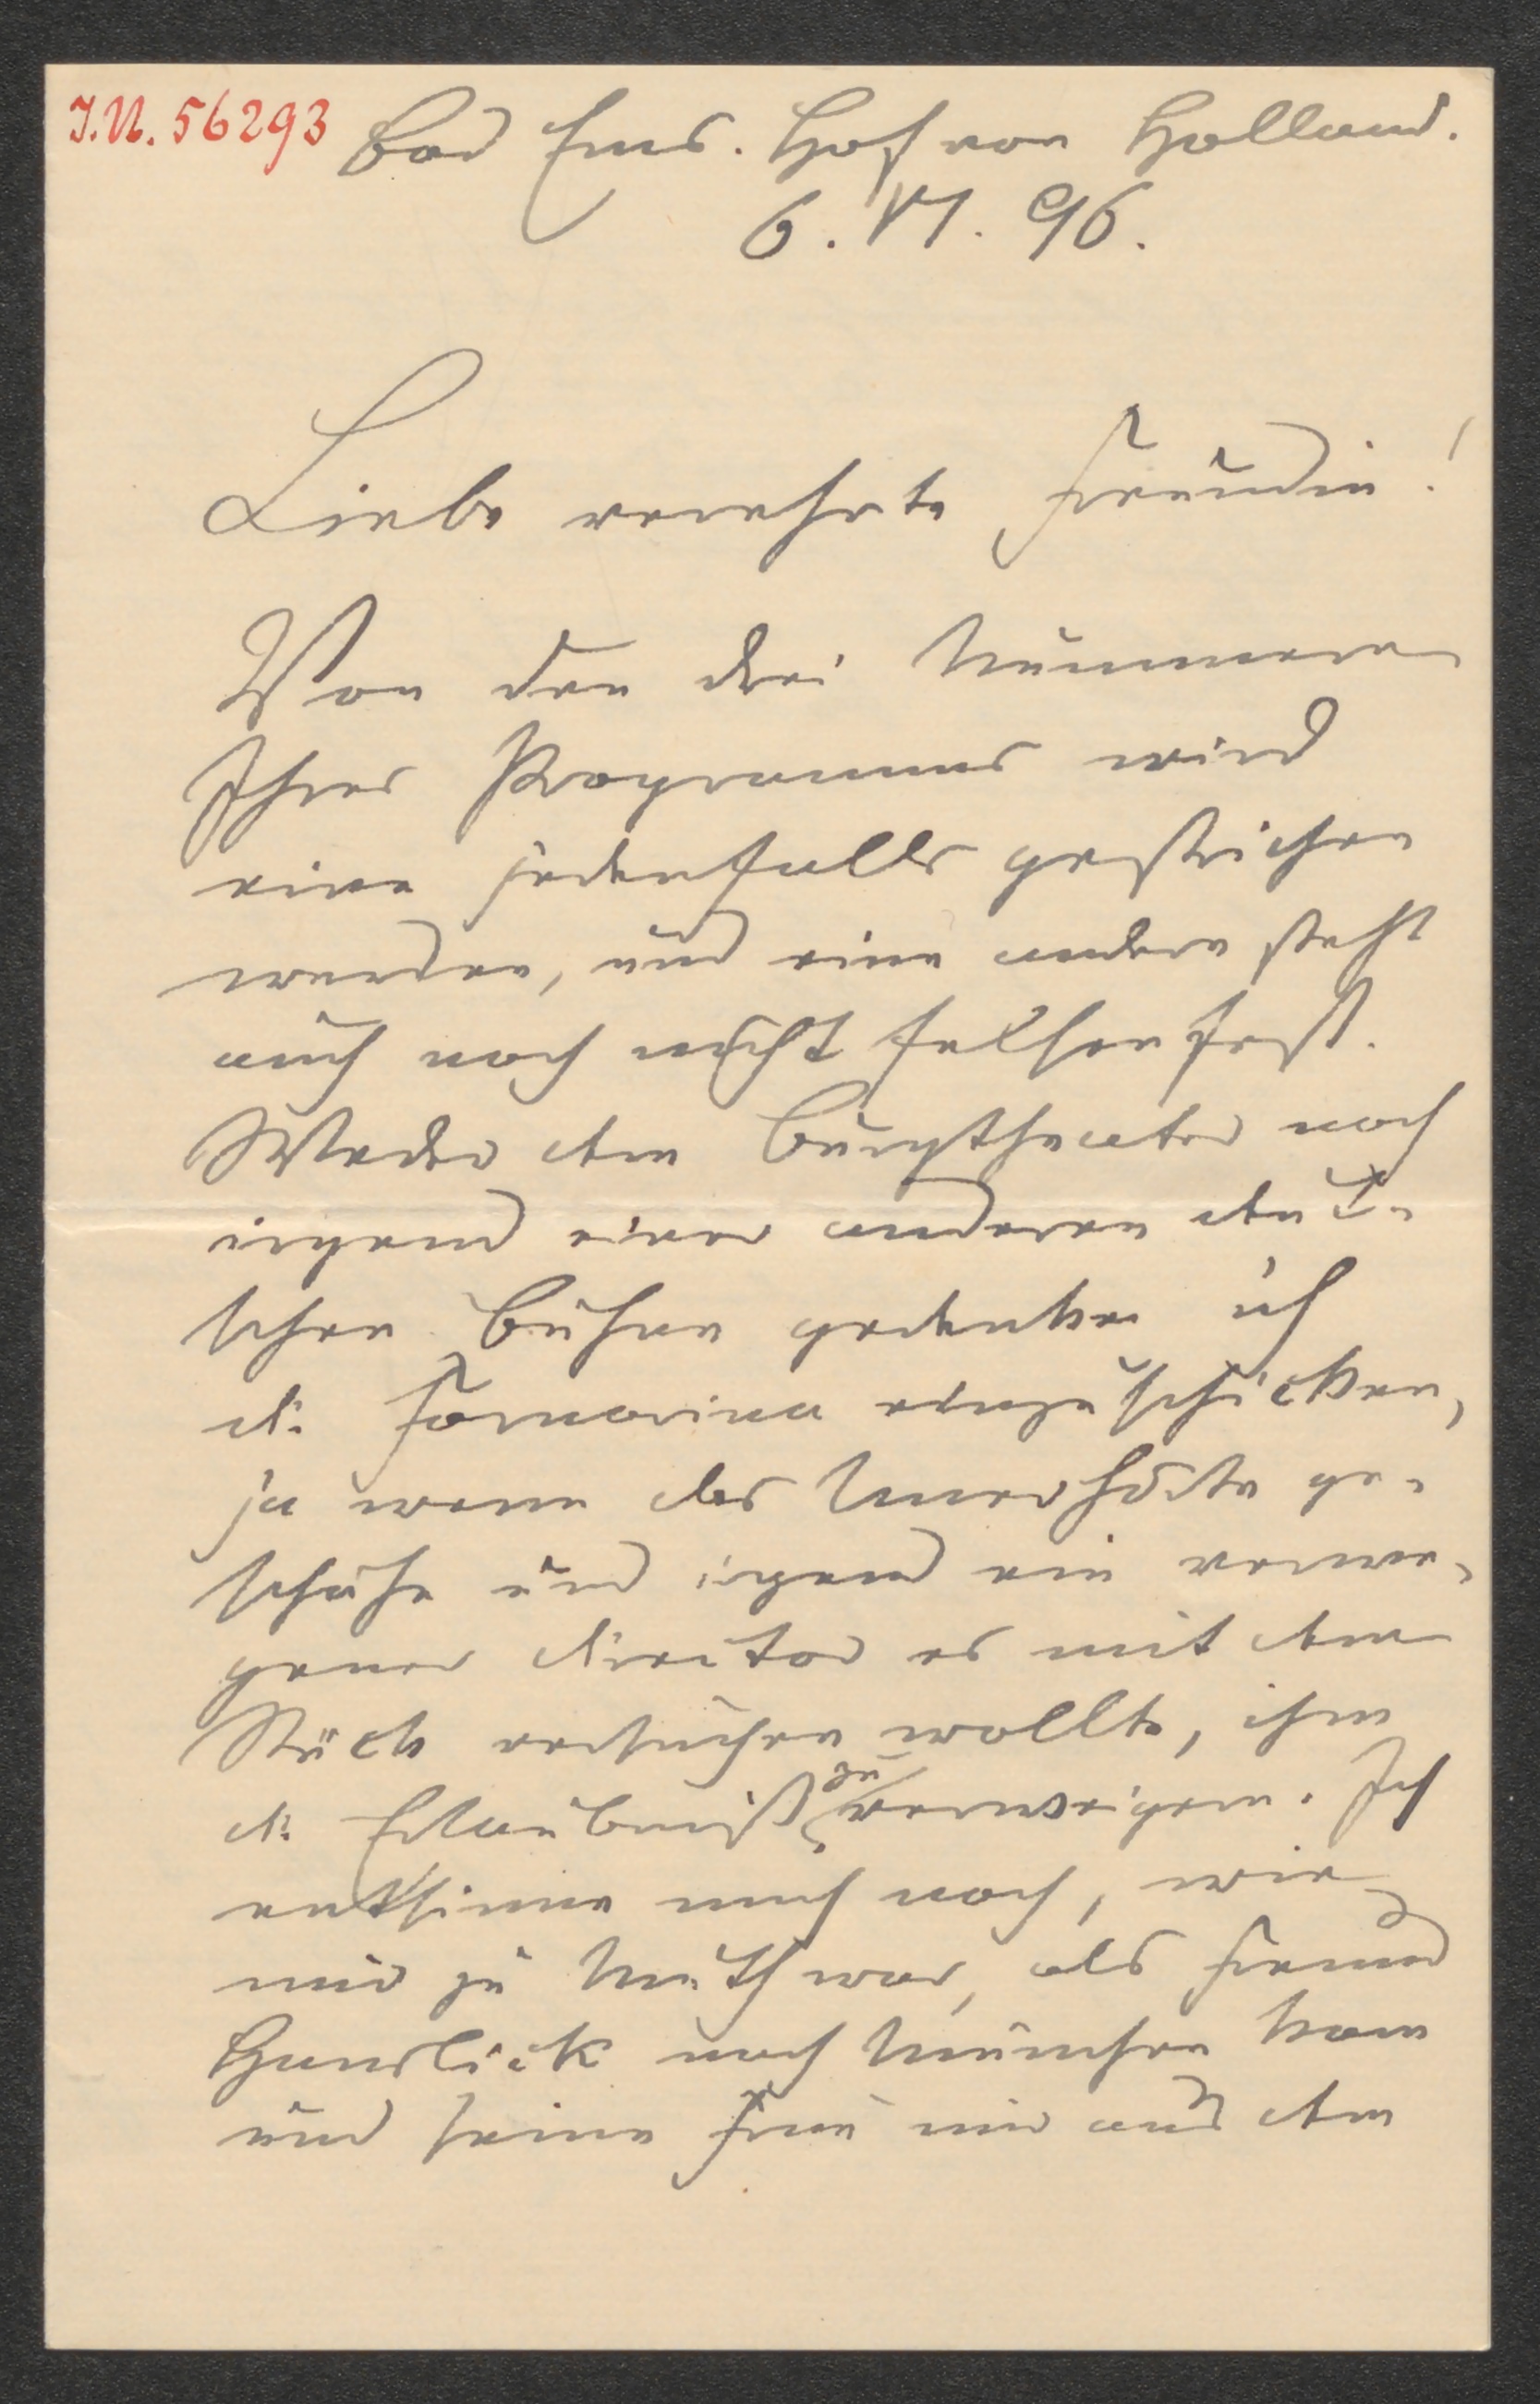 I.N. 56293 Bad Ems. Hof von Holland.
6. VI. 96.
Liebe verehrte Freundin!
Von den drei Nummern
Ihres Programms wird
eine jedenfalls gestrichen
werden, und eine andere steht
auch noch nicht felsenfest.
Weder dem Burgtheater noch
irgend einer anderen deut-
schen Bühne gedenke ich
die Fornarina einzuschicken,
ja wenn das Unerhörte ge-
schähe und irgend ein verwe-
gener Director es mit dem
Stück versuchen wollte, ihm
die Erlaubniß zu verweigern. Ich
entsinne mich noch, wie
mir zu Muth war, als Freund
Hanslick nach München kam
und seine Frau mir aus dem